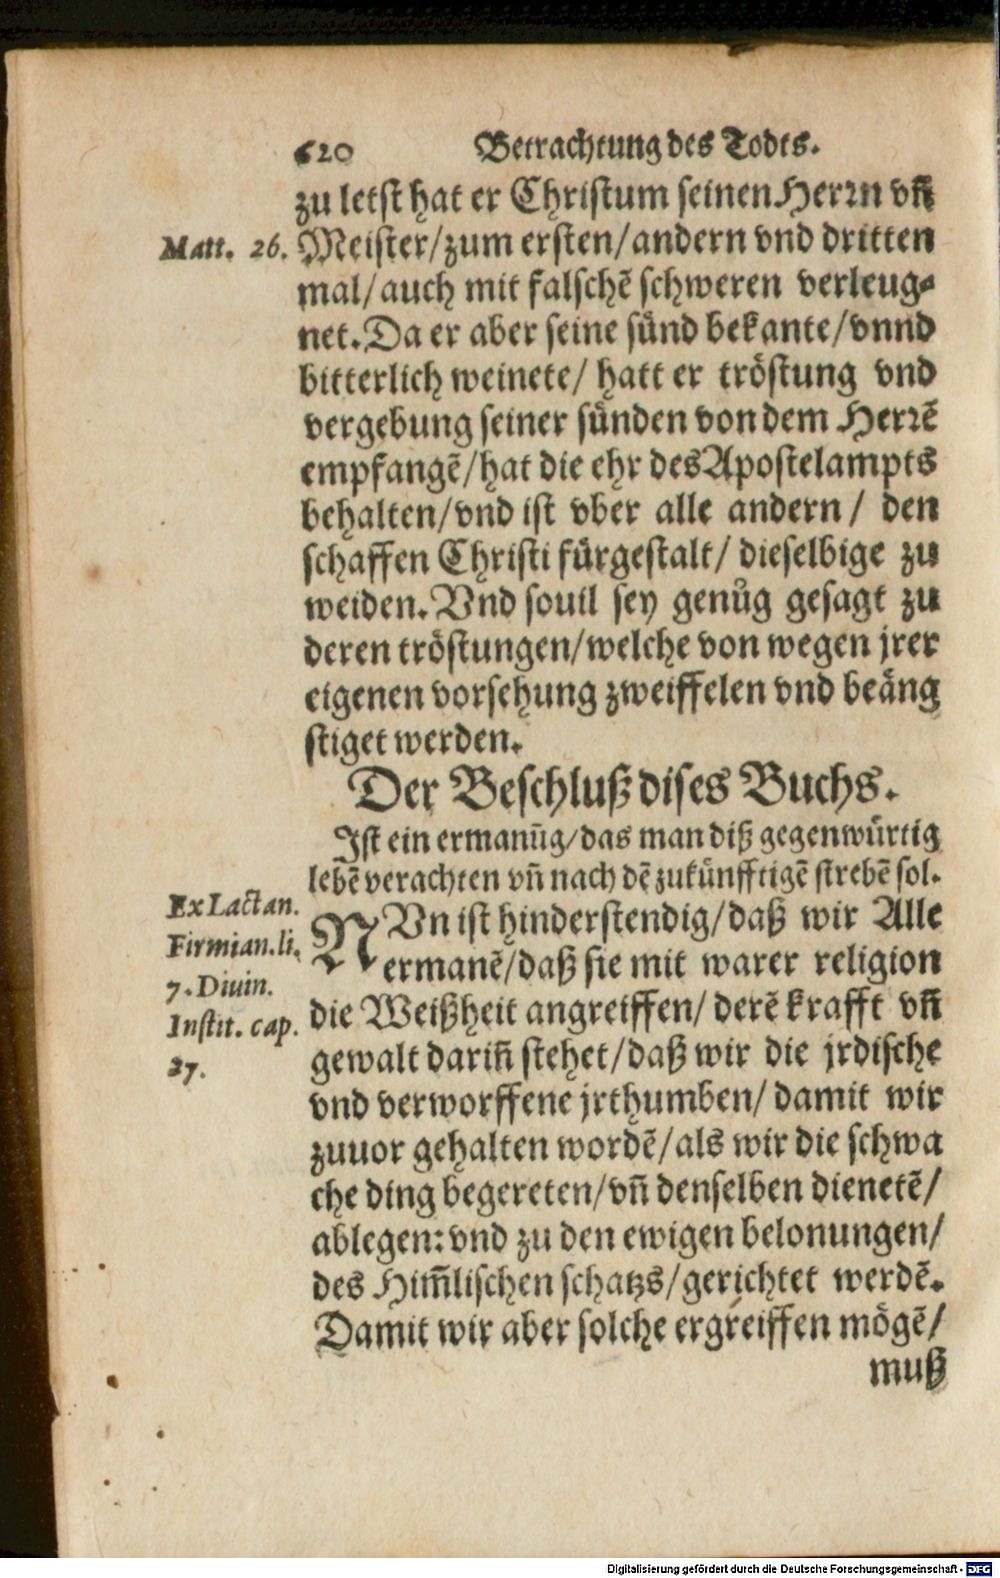 620 Betrachtung des Todts.
zu letst hat er Christum seinen Herꝛn vñ
Matt. 26. Meister/zum ersten/andern vnd dritten
mal/auch mit falschẽ schweren verleug⸗
net. Da er aber seine sünd bekante/vnnd
bitterlich weinete/ hatt er tröstung vnd
vergebung seiner sünden von dem Herꝛẽ
empfangẽ/hat die ehr des Apostelampts
behalten/vnd ist vber alle andern/ den
schaffen Christi fürgestalt/ dieselbige zu
weiden. Vnd souil sey genůg gesagt zu
deren tröstungen/welche von wegen jrer
eigenen vorsehung zweiffelen vnd beäng
stiget werden.
Der Beschluß dises Buchs.
Ist ein ermanũg/das man diß gegenwürtig
lebẽ verachten vñ nach dẽ zukünfftigẽ strebẽ sol.
Ex Lactan.
Firmian. li.
7. Diuin.
Instit. cap.
27.
NVn ist hinderstendig/daß wir Alle
ermanẽ/daß sie mit warer religion
die Weißheit angreiffen/ derẽ krafft vñ
gewalt dariñ stehet/daß wir die jrdische
vnd verworffene jrthumben/ damit wir
zuuor gehalten wordẽ/als wir die schwa
che ding begereten/vñ denselben dienetẽ/
ablegen: vnd zu den ewigen belonungen/
des Him̃lischen schatzs/gerichtet werdẽ.
Damit wir aber solche ergreiffen mögẽ/
muß
Digitalisierung gefördert durch die Deutsche Forschungsgemeinschaft - DFG